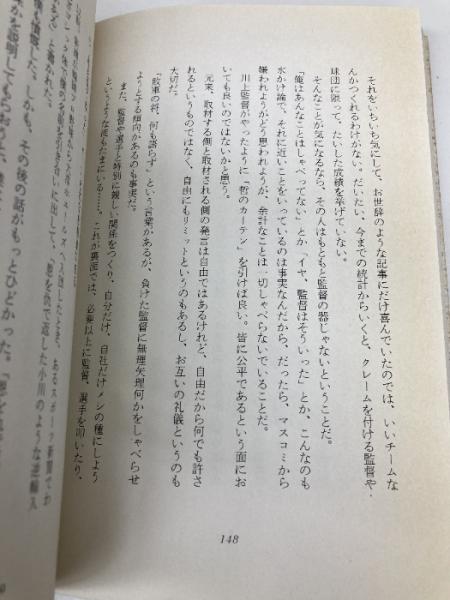 それをいちいち気にして、お世辞のような記事にだけ喜んでいたのでは、いいチームな
んかつくれるわけがない。だいたい、今までの統計からいくと、クレームを付ける監督や
球団に限って、たいした成績を挙げていない。
そんなことが気になるなら、その人はもともと監督の器じゃないということだ。
「俺はあんなことはしゃべってない」とか「イヤ、監督はそういった」とか、こんなのも
水かけ論で、それに近いことをいっているのは事実なんだから、だったら、マスコミから
嫌われようがどう思われようが、余計なことは一切しゃべらないでいることだ。
川上監督がやったように「哲のカーテン」を引けば良い。皆に公平であるという面にお
いても良いのではないかと思う。
元来、取材する側と取材される側の発言は自由ではあるけれど、自由だから何でも許さ
れるというものではなく、自由にもリミットというのもあるし、お互いの礼儀というのも
大切だ。
「敗軍の将、何も語らず」という言葉があるが、負けた監督に無理矢理何かをしゃべらせ
ようとする傾向があるのも事実だ。
また、監督や選手と特別に親しい関係をつくり、自分だけ、自社だけメシの種にしよう
というような流もたまにいる……。これが裏面では、必要以上に監督、選手を叩いたり、
148